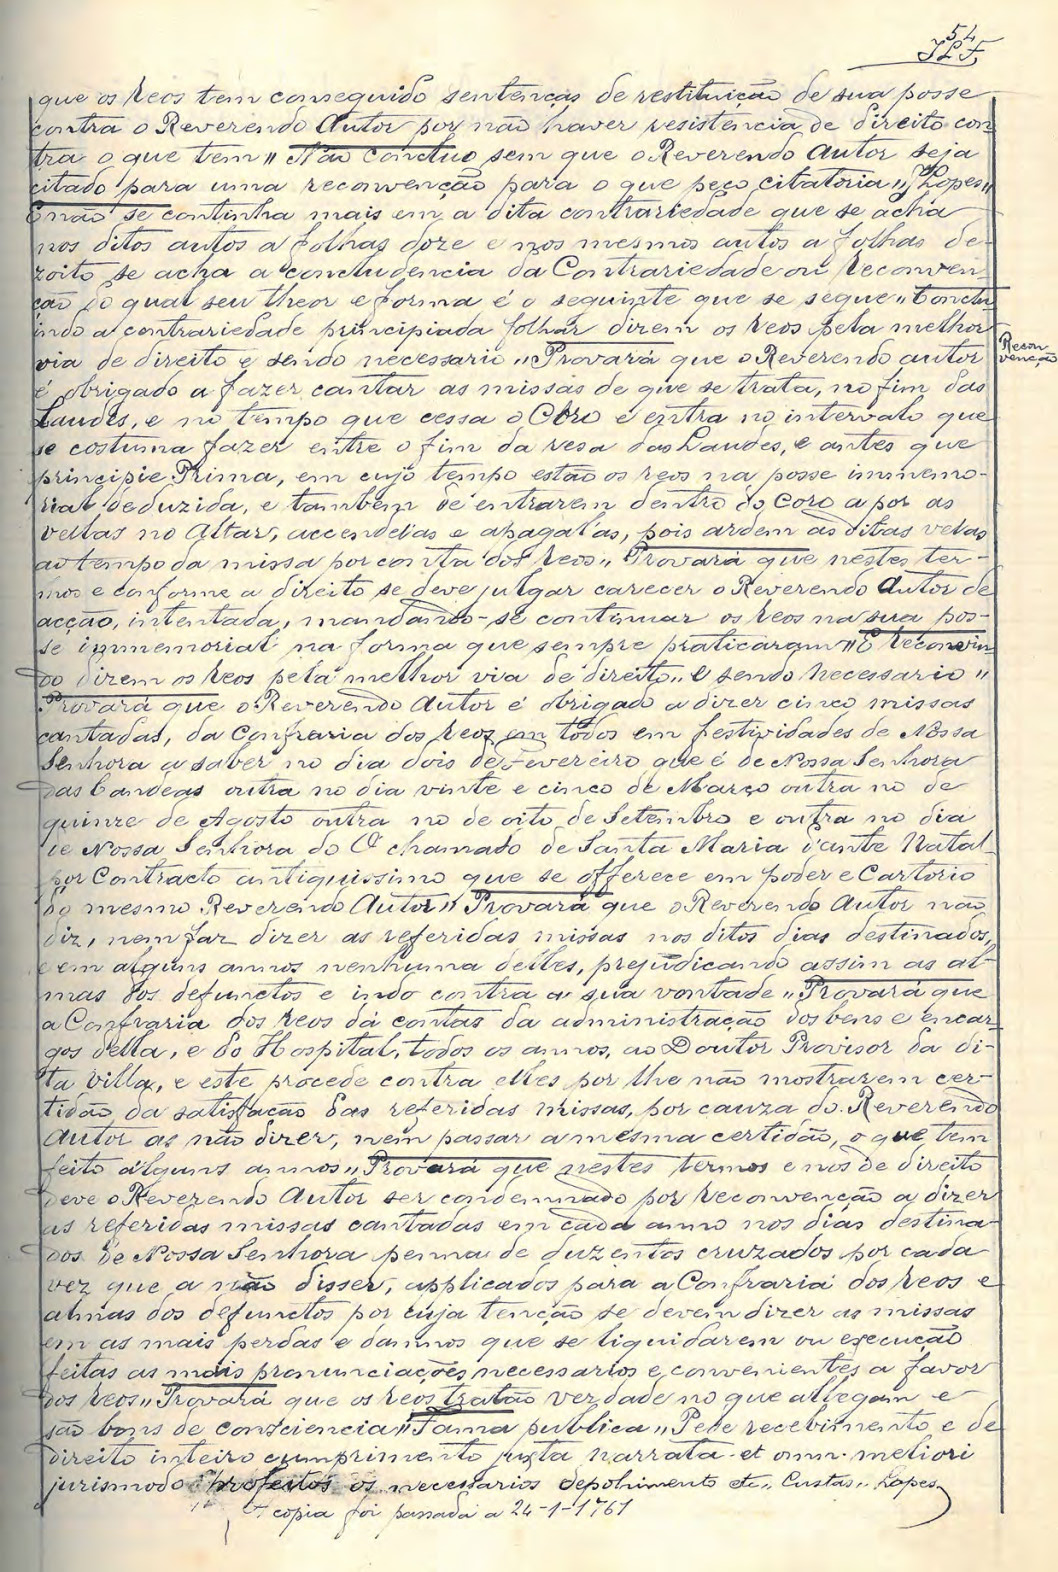 54
JLF,
que os Reos tem conseguido sentenças de restituição de sua posse
contra o Reverendo Autor por não haver resistencia de direito con
tra o que tem,, Não concluo sem que o Reverendo Autor seja
citado para uma reconvenção para o que peço citatoria,, Lopes,,
E não se continha mais em a dita contrariedade que se acha
nos ditos autos a folhas doze e nos mesmos autos a folhas de-
zoito se acha a concludencia da Contrariedade ou Reconven
ção do qual seu theor e forma é o seguinte que se segue,, Conclu
indo a contrariedade principiada folhas dizem os Reos pela melhor
Recon-
venção
via de direito e sendo necessario,, Provará que o Reverendo autor
é obrigado a fazer cantar as missas de que se trata, no fim das
Laudes, e no tempo que cessa o Côro e entra no intervalo que
se costuma fazer entre o fim da resa das Laudes, e antes que
principie Prima, em cujo tempo estão os reos na posse immemo-
rial deduzida, e tambem de entrarem dentro do Coro a por as
vellas no Altar, accendelas e apagal'as, pois ardem as ditas velas
ao tempo da missa por conta dos Reos,, Provará que nestes ter-
mos e conforme a direito se deve julgar carecer o Reverendo Autor de
acção, intentada, mandando-se continuar os Reos na sua pos-
se immemorial na forma que sempre praticaram,, E reconvin
do dizem os Reos pela melhor via de direito,, e sendo necessario,,
Provará que o Reverendo Autor é obrigado a dizer cinco missas
cantadas, da Confraria dos Reos em todos em festividades de Nossa
Senhora a saber no dia dois de Fevereiro que é de Nossa Senhora
das Candeas outra no dia vinte e cinco de Março outra no de
quinze de Agosto outra no de oito de Setembro e outra no dia
de Nossa Senhora do O' chamado de Santa Maria d'ante Natal
por Contracto antiquissimo que se offerece em poder e Cartorio
do mesmo Reverendo Autor,, Provará que o Reverendo Autor não
diz, nem faz dizer as referidas missas nos ditos dias destinados,
e em alguns annos nenhuma delles, prejudicando assim as al-
mas dos defunctos e indo contra a sua vontade,, Provará que
a Confraria dos Reos dá contas da administração dos bens e encar
gos della, e do Hospital, todos os annos, ao Doutor Provisor da di-
ta Villa, e este procede contra elles por lhe não mostrarem cer-
tidão da satisfação das referidas missas, por cauza do Reverendo
Autor as não dizer, nem passar a mesma certidão, o que tem
feito alguns annos,, Provará que nestes termos e nos de direito
deve o Reverendo Autor ser condemnado por reconvenção a dizer
as referidas missas cantadas em cada anno nos dias destina-
dos de Nossa Senhora penna de duzentos cruzados por cada
vez que a não disser, applicados para a Confraria dos Reos e
almas dos defunctos por cuja tenção se devem dizer as missas
em as mais perdas e damnos que se liquidarem ou execução
feitas as mais pronunciações necessarios e convenientes a favor
dos Reos,, Provará que os Reos tratão verdade no que allegam e
são bons de consciencia,, Fama publica,, Pede recebimento e de
direito inteiro cumprimento justa narrata et omn. meliori
jurismodo os necessarios depohimento etc,, Custas,, Lopes.
copia foi passada a 24-1-1761